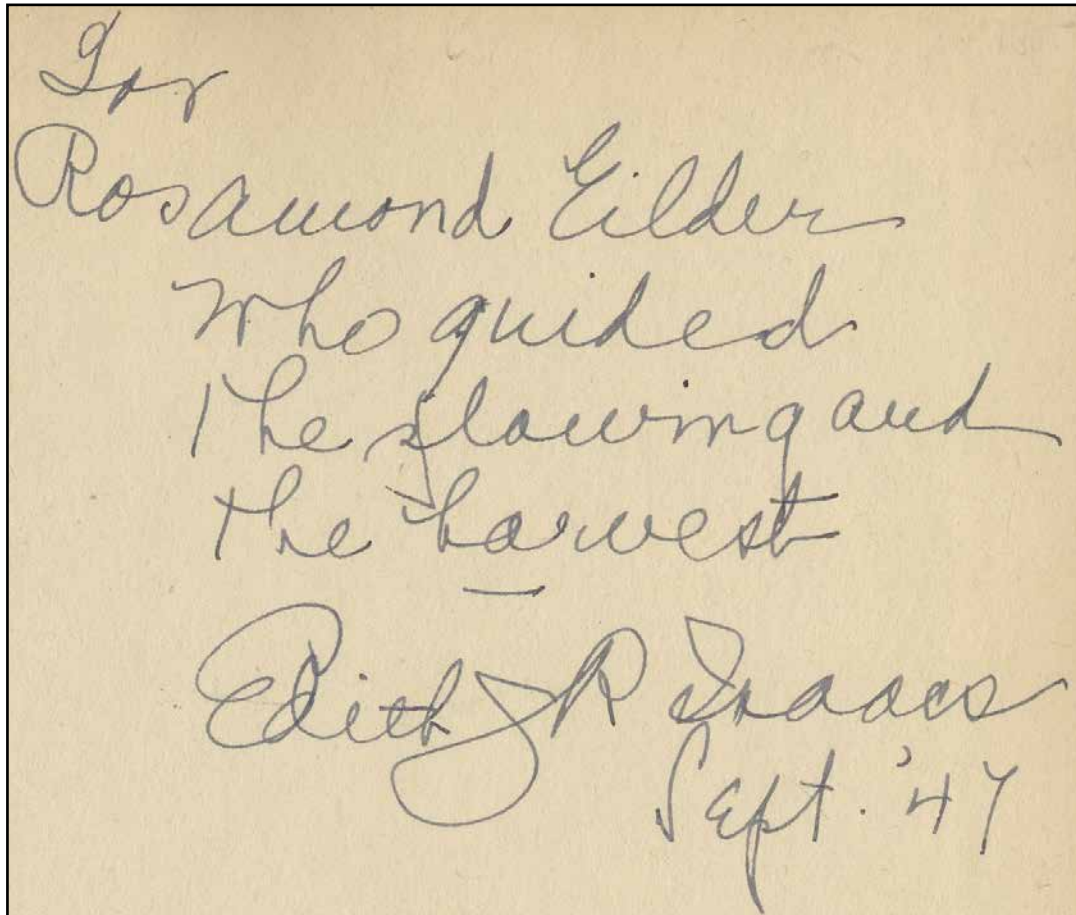 For
Rosamond Gilder
Who guided
the plowing and
the harvest
—
Edith J R Isaacs
Sept. '47